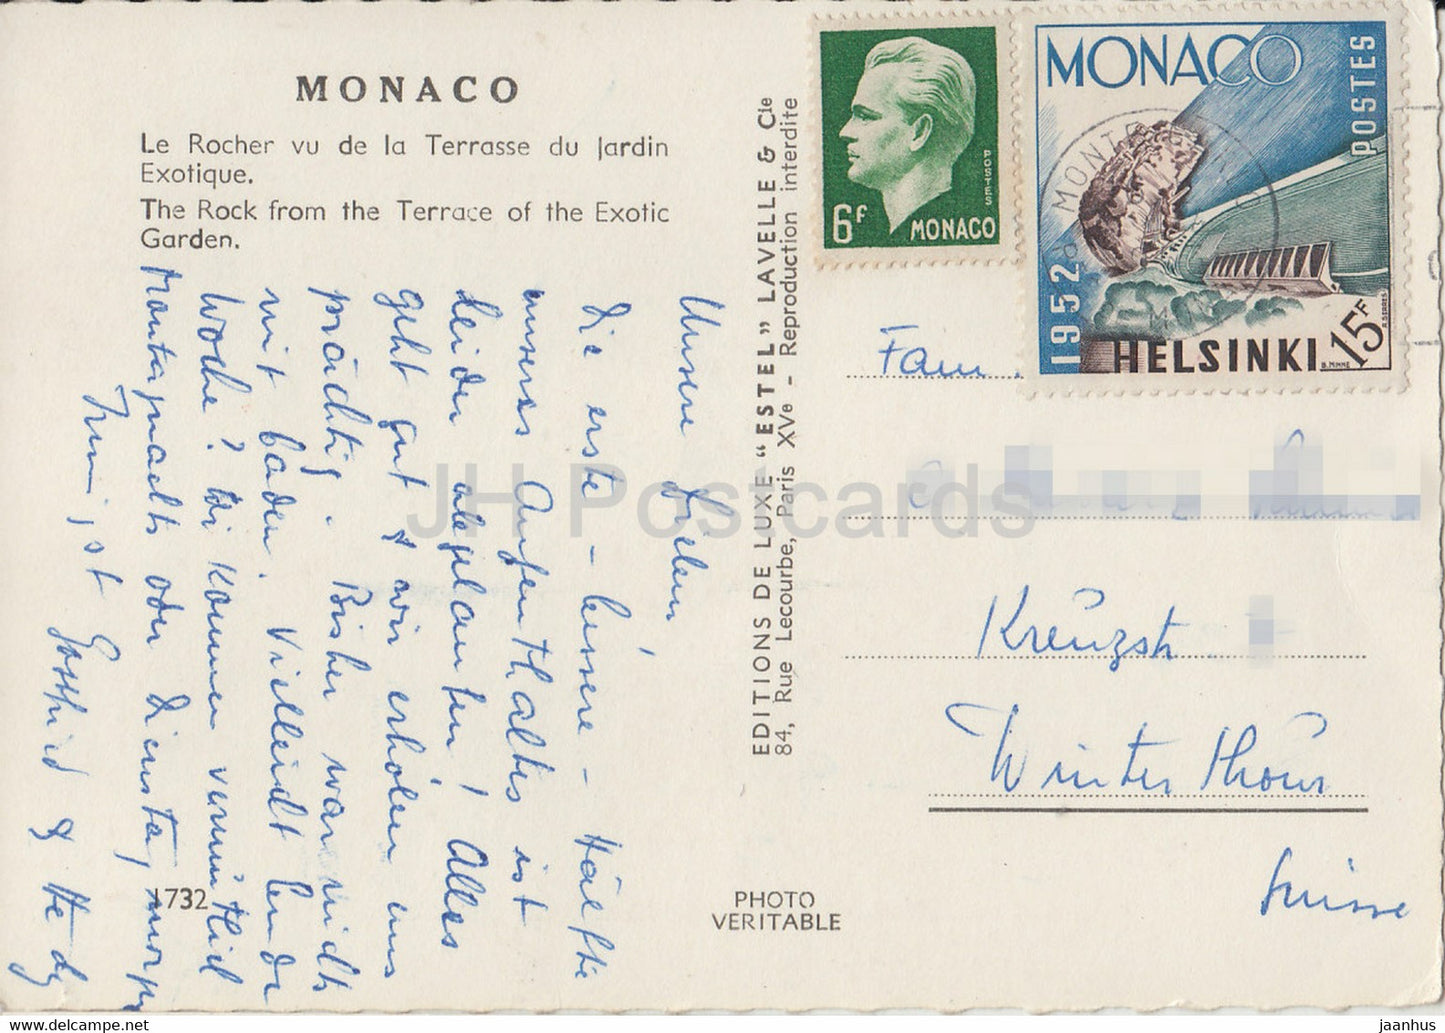 MONACO
Le Rocher vu de la Terrasse du Jardin
Exotique.
The Rock from the Terrace of the Exotic
Garden.
Unsere Lieben!
Die erste - bessere - Hälfte
unseres Aufenthaltes ist
leider abgelaufen! Alles
geht gut & wir erholen uns
prächtig. Bisher war nichts
mit baden. Vielleicht Ende
Woche? Wir kommen vermutlich
Montagnacht oder Dienstag
Gottfried & Hedy
1732
PHOTO
VERITABLE
EDITIONS DE LUXE "ESTEL" LAVELLE & Cie
84, Rue Lecourbe, Paris XVe - Reproduction interdite
POSTES
6F MONACO
MONACO
POSTES
1952
HELSINKI
15F
B. MINNE
Fam.
Kreuzstr
Winterthur
Suisse
JH Postcards
delcampe.net
jaanhus